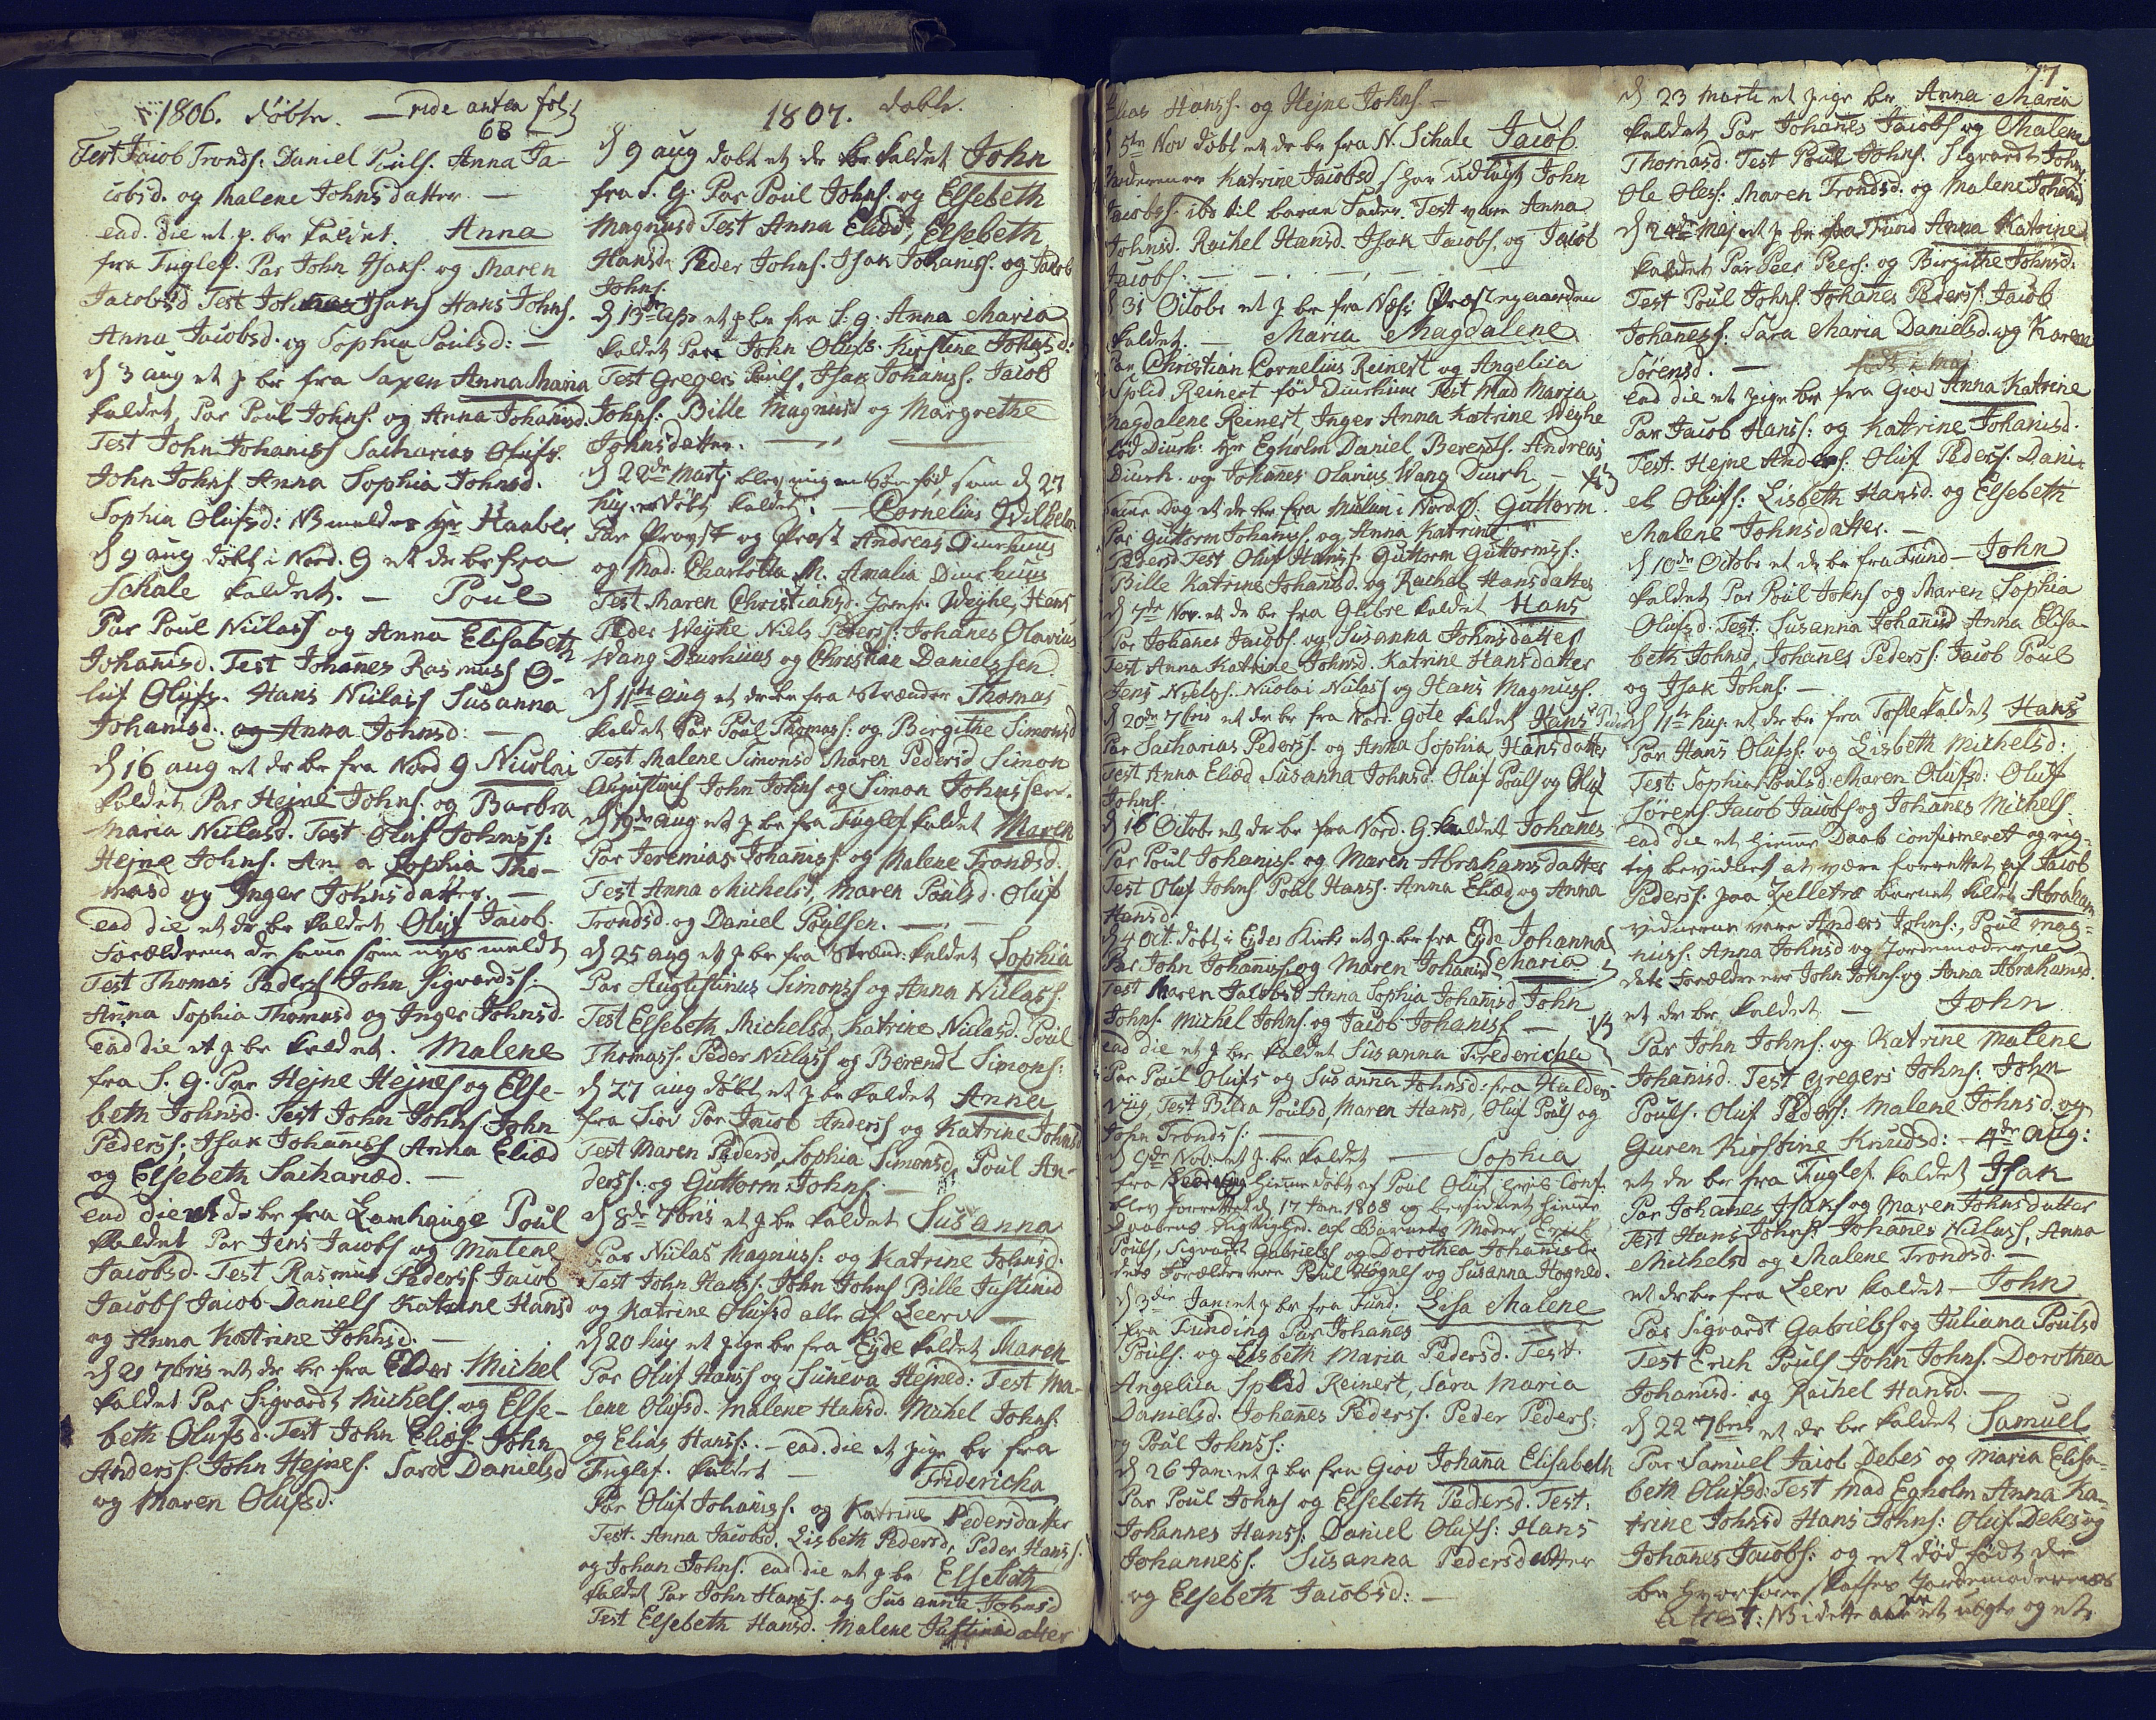 1806. døbte. — vide antea fol
68
Test Jacob Tronds: Daniel Pouls. Anna Ja-
cobsd. og Malene Johnsdatter. —
ead. die et p. br kaldet. Anna
fra Fuglef. Par John Isaks. og Maren
Jacobsd Test Johannes Isaks Hans Johns.
Anna Jacobsd. og Sophia Poulsd: —
d 3 aug et p br fra Saxen Anna Maria
kaldet, Par Poul Johns. og Anna Johanisd.
Test John Johaniss Sacharias Olufs.
John Johns Anna Sophia Johnsd.
Sophia Olufsd: NB meldes Hr Haaber.
d 9 aug døbt i Nord. G et dr br fra
Schale kaldet. — Poul
Par Poul Niclass og Anna Elisabeth
Johanisd. Test Johanes Rasmuss O-
luf Olufs. Hans Niclass Susanna
Johanisd. og Anna Johnsd: —
d 16 aug et dr br fra Nord G Nicolai
kaldet Par Hejne Johns. og Barbra
Maria Niclasd. Test Oluf Johnss:
Hejne Johns. Anna Sophia Tho-
masd og Inger Johnsdatter. —
ead die et dr br kaldet Oluf Jacob.
Forældrene de samme som nys meldt
Test Thomas Peders John Sigvardss:
Anna Sophia Thomasd og Inger Johnsd.
Ead die et p br kaldet. Malene
fra S. G. Par Hejne Hejnes og Else-
beth Johnsd. Test John Johns John
Pederss: Isak Johaniss Anna Eliæd
og Elsebeth Sachariæd. —
Ead die et dr br fra Lamhauge Poul
kaldet Par Jens Jacobs og Malene
Jacobsd. Test Rasmus Pederss Jacob
Jacobs Jacob Daniels Katrine Hansd
og Anna Katrine Johnsd. —
d 21 7bris et dr br fra Elder Michel
kaldet Par Sigvardt Michels. og Else-
beth Olufsd. Test John Eliæs. John
Anderss. John Hejnes. Sara Danielsd
og Maren Olufsd.
1807. døbte.
d 9 aug døbt et dr br kaldet John
fra S. G: Par Poul Johns. og Elsebeth
Magnusd Test Anna Eliæd, Elsebeth
Hansd. Peder Johns. Isak Johaniss. og Jacob
Johns.
d 13de et p br fra S: g: Anna Maria
kaldet Par John Olufs. Kirstine Johnsd:
Test Gregers Pouls. Isak Johaniss. Jacob
Johns: Bille Magnusd og Margrethe
Johnsdatter. —
d 22de Martj blev mig en Søn fød, som d 27
huj. er døbt kaldet. — Cornelius Wilhelm
Par Provst og Præst Andreas Diurhuus
og Mad. Charlotta M. Amalia Diurhuus
Test Maren Christiansd. Jomfr. Weyhe, Hans
Peder Weyhe Niels Peterss: Johanes Olavius
Wang Diurhuus og Christian Danielssen
d 11te aug et dr br fra Strænder Thomas
kaldet Par Poul Thomass: og Birgithe Simonsd
Test Malene Simonsd Maren Pedersd Simon
Augustinus John Johns og Simon Johnssen.
d 19de aug et p br fra Fuglef. kaldet Maren
Par Jeremias Johaniss: og Malene Trondsd.
Test Anna Michelsd, Maren Poulsd. Oluf
Trondsd og Daniel Poulsen. —
d 25 aug et p br fra Strænd: kaldet Sophia
Par Augustinus Simonss og Anna Niclass.
Test Elsebeth Michelsd, Katrine Niclasd. Poul
Thomass. Peder Niclass og Berendt Simons:
d 27 aug døbt et p br kaldet Anna
fra Giov Par Jacob Anderss og Katrine Johnsd
Test Maren Pedersd, Sophia Simonsd, Poul An-
derss: og Guttorm Johns: —
d 8de 7bris et p br kaldet Susanna
Par Niclas Magnuss: og Katrine Johnsd.
Test John Hanss. John Johns Bille Justinid
og Katrine Olufsd alle af Leerv —
d 20 huj et pige br fra Eyde kaldet Maren
Par Oluf Hanss og Suneva Hejned: Test Ma-
lene Olufsd. Malene Hansd. Michel Johns.
og Elias Hanss: — ead. die et pige br fra
Fuglef. kaldet — Fridericha
Par Oluf Johaniss. og Katrine Pedersdatter
Test. Anna Jacobsd. Lisbeth Pedersd, Peder Hanss.
og Johan Johns. ead die et p br Elsebeth
kaldet Par John Hanss. og Susanna Johnsd
Test Elsebeth Hansd. Malene Justinidatter
Hanss. og Hejne Johns. —
d 5te Nov døbt et dr br fra N. Schale Jacob
Moderen er Katrine Jacobsd, har udlagt John
Jacobss: ibd til barne Fader. Test vare Anna
Johnsd. Rachel Hansd. Isak Jacobs. og Jacob
Jacobs: —
d 31 Octobr et p br fra Næs: Præstegaarden
kaldet. — Maria Magdalene
Par Christian Cornelius Reinert og Angelica
Splid Reinert fød Diurhuus Test Mad Maria
Magdalene Reinert, Inger Anna Katrine Weyhe
fød Diurh. Hr Egholm Daniel Berents. Andreas
Diurh. og Johanes Olavius Wang Diurh. —
samme Dag et dr br fra i Nordø. Guttorm
Par Guttorm Johanis. og Anna Katrine
Pedersd Test Oluf Hanss. Guttorm Guttormss:
Bille Katrine Johanisd. og Rachel Hansdatter
d 7de Nov. et dr br fra Glibre kaldet Hans
Par Johanes Jacobs og Susanna Johnsdatter
Test Anna Katrine Johnsd. Katrine Hansdatter
Jens Nielss. Nicolai Niclass og Hans Magnuss.
d 20de 7bris et dr br fra Nord Gøte kaldet Hans
Par Sacharias Pederss. og Anna Sophia Hansdatter
Test Anna Eliæd Susanna Johnsd. Oluf Pouls og Oluf
Johns.
d 16 Octobr et dr br fra Nord. G. kaldet Johanes
Par Poul Johaniss. og Maren Abrahamsdatter
Test Oluf Johns. Poul Hanss. Anna Eliæd og Anna
Hansd.
d 4 Oct. døbt i Eydes Kirke et p. br fra Eyde Johanna
Par John Johaniss. og Maren Johanisd Maria
Test Maren Jacobsd Anna Sophia Johanisd John
Johns. Michel Johns. og Jacob Johaniss —
ead die et p br kaldet Susanna Fredericha
Par Poul Olufs og Susanna Johnsd: fra Halder-
viig, Test Bilda Poulsd, Maren Hansd, Oluf Pouls og
John Tronds: —
d 9de Nob. et p. br kaldet — Sophia
fra hiemedøbt af Poul Oluf: Conf.
blev forrettet d 17 Jan. 1808 og bevidnet hieme
Daabens Rigtighed af Barnets Moder, Erick
Pouls, Sigvardt Gabrielss og Dorothea Johanisd.
dets Forældre ere Poul Høgnes og Susanna Hogned.
d 3die Jan: et p br fra Fund: Lisa Malene
fra Funding Par Johanes
Pouls. og Lisbeth Maria Pedersd. Test.
Angelica Splid Reinert, Sara Maria
Danielsd. Johanes Pederss. Peder Peders:
og Poul Johnss:
d 26 Jan: et p br fra Giov Johanna Elisabeth
Par Poul Johns og Elsebeth Pedersd. Test:
Johannes Hanss: Daniel Olufs: Hans
Johanness. Susanna Pedersdatter
og Elsebeth Jacobsd: —
77
d 23 Marti et pige br Anna Maria
kaldet Par Johanes Jacobs og Malene
Thomasd. Test Poul Johns. Sigvardt Johns:
Ole Oless: Maren Trondsd. og Malene Johanisd
d 24de Maj et p br fra Fund Anna Katrine
kaldet Par Peer Peers. og Birgithe Johnsd.
Test Poul Johns. Johanes Pederss: Jacob
Johaness: Sara Maria Danielsd. og Karen
Sørensd. — født i Maj
Ead die et pige br fra Giov Anna Katrine
Par Jacob Hanss: og Katrine Johanisd.
Test. Hejne Anders: Oluf Peders. Dani-
el Olufs: Lisbeth Hansd. og Elsebeth
Malene Johnsdatter. —
d 10de Octobr et dr br fra Fund — John
kaldet Par Poul Johns og Maren Sophia
Olufsd. Test. Susanna Johanisd Anna Elisa-
beth Johnsd, Johanes Pederss: Jacob Pouls
og Isak Johns: —
d 11te huj. et dr br fra Tofte kaldet Hans
Par Hans Olufss: og Lisbeth Michelsd:
Test Sophia Poulsd. Maren Olufsd: Oluf
Sørens. Jacob Jacobs og Johanes Michels.
ead die et hieme Daab confirmeret og rig-
tig bevidnet, at være forrettet af Jacob
Pederss: paa Zelletræ barnet kaldet Abraham
vidnerne vare Anders Johns: Poul Mag-
nuss. Anna Johnsd og Jordemoderen
dets Forældre ere John Johns. og Anna Abrahamsd.
et dr br kaldet — John
Par John Johns: og Katrine Malene
Johanisd. Test Gregers Johns: John
Pouls. Oluf Peders: Malene Johnsd og
Guren Kirstine Knudsd: — 4de aug:
et dr br fra Fuglef. kaldet Isak
Par Johanes Isaks og Maren Johnsdatter
Test Hans Johns: Johanes Niclass, Anna
Michelsd og Malene Trondsd. —
et dr br fra Leerv kaldet — John
Par Sigvardt Gabrielss og Juliana Poulsd
Test Erich Pouls John Johns. Dorothea
Johanisd. og Rachel Hansd. —
d 22 7bris et dr br kaldet Samuel
Par Samuel Jacob Debes og Maria Elisa-
beth Olufsd: Test Mad Egholm Anna Ka-
trine Johnsd Hans Johns: Oluf Debes og
Johanes Jacobs: og et død født dr
br hvorfore skaffes Jordemoderens
attest: NB dette og et